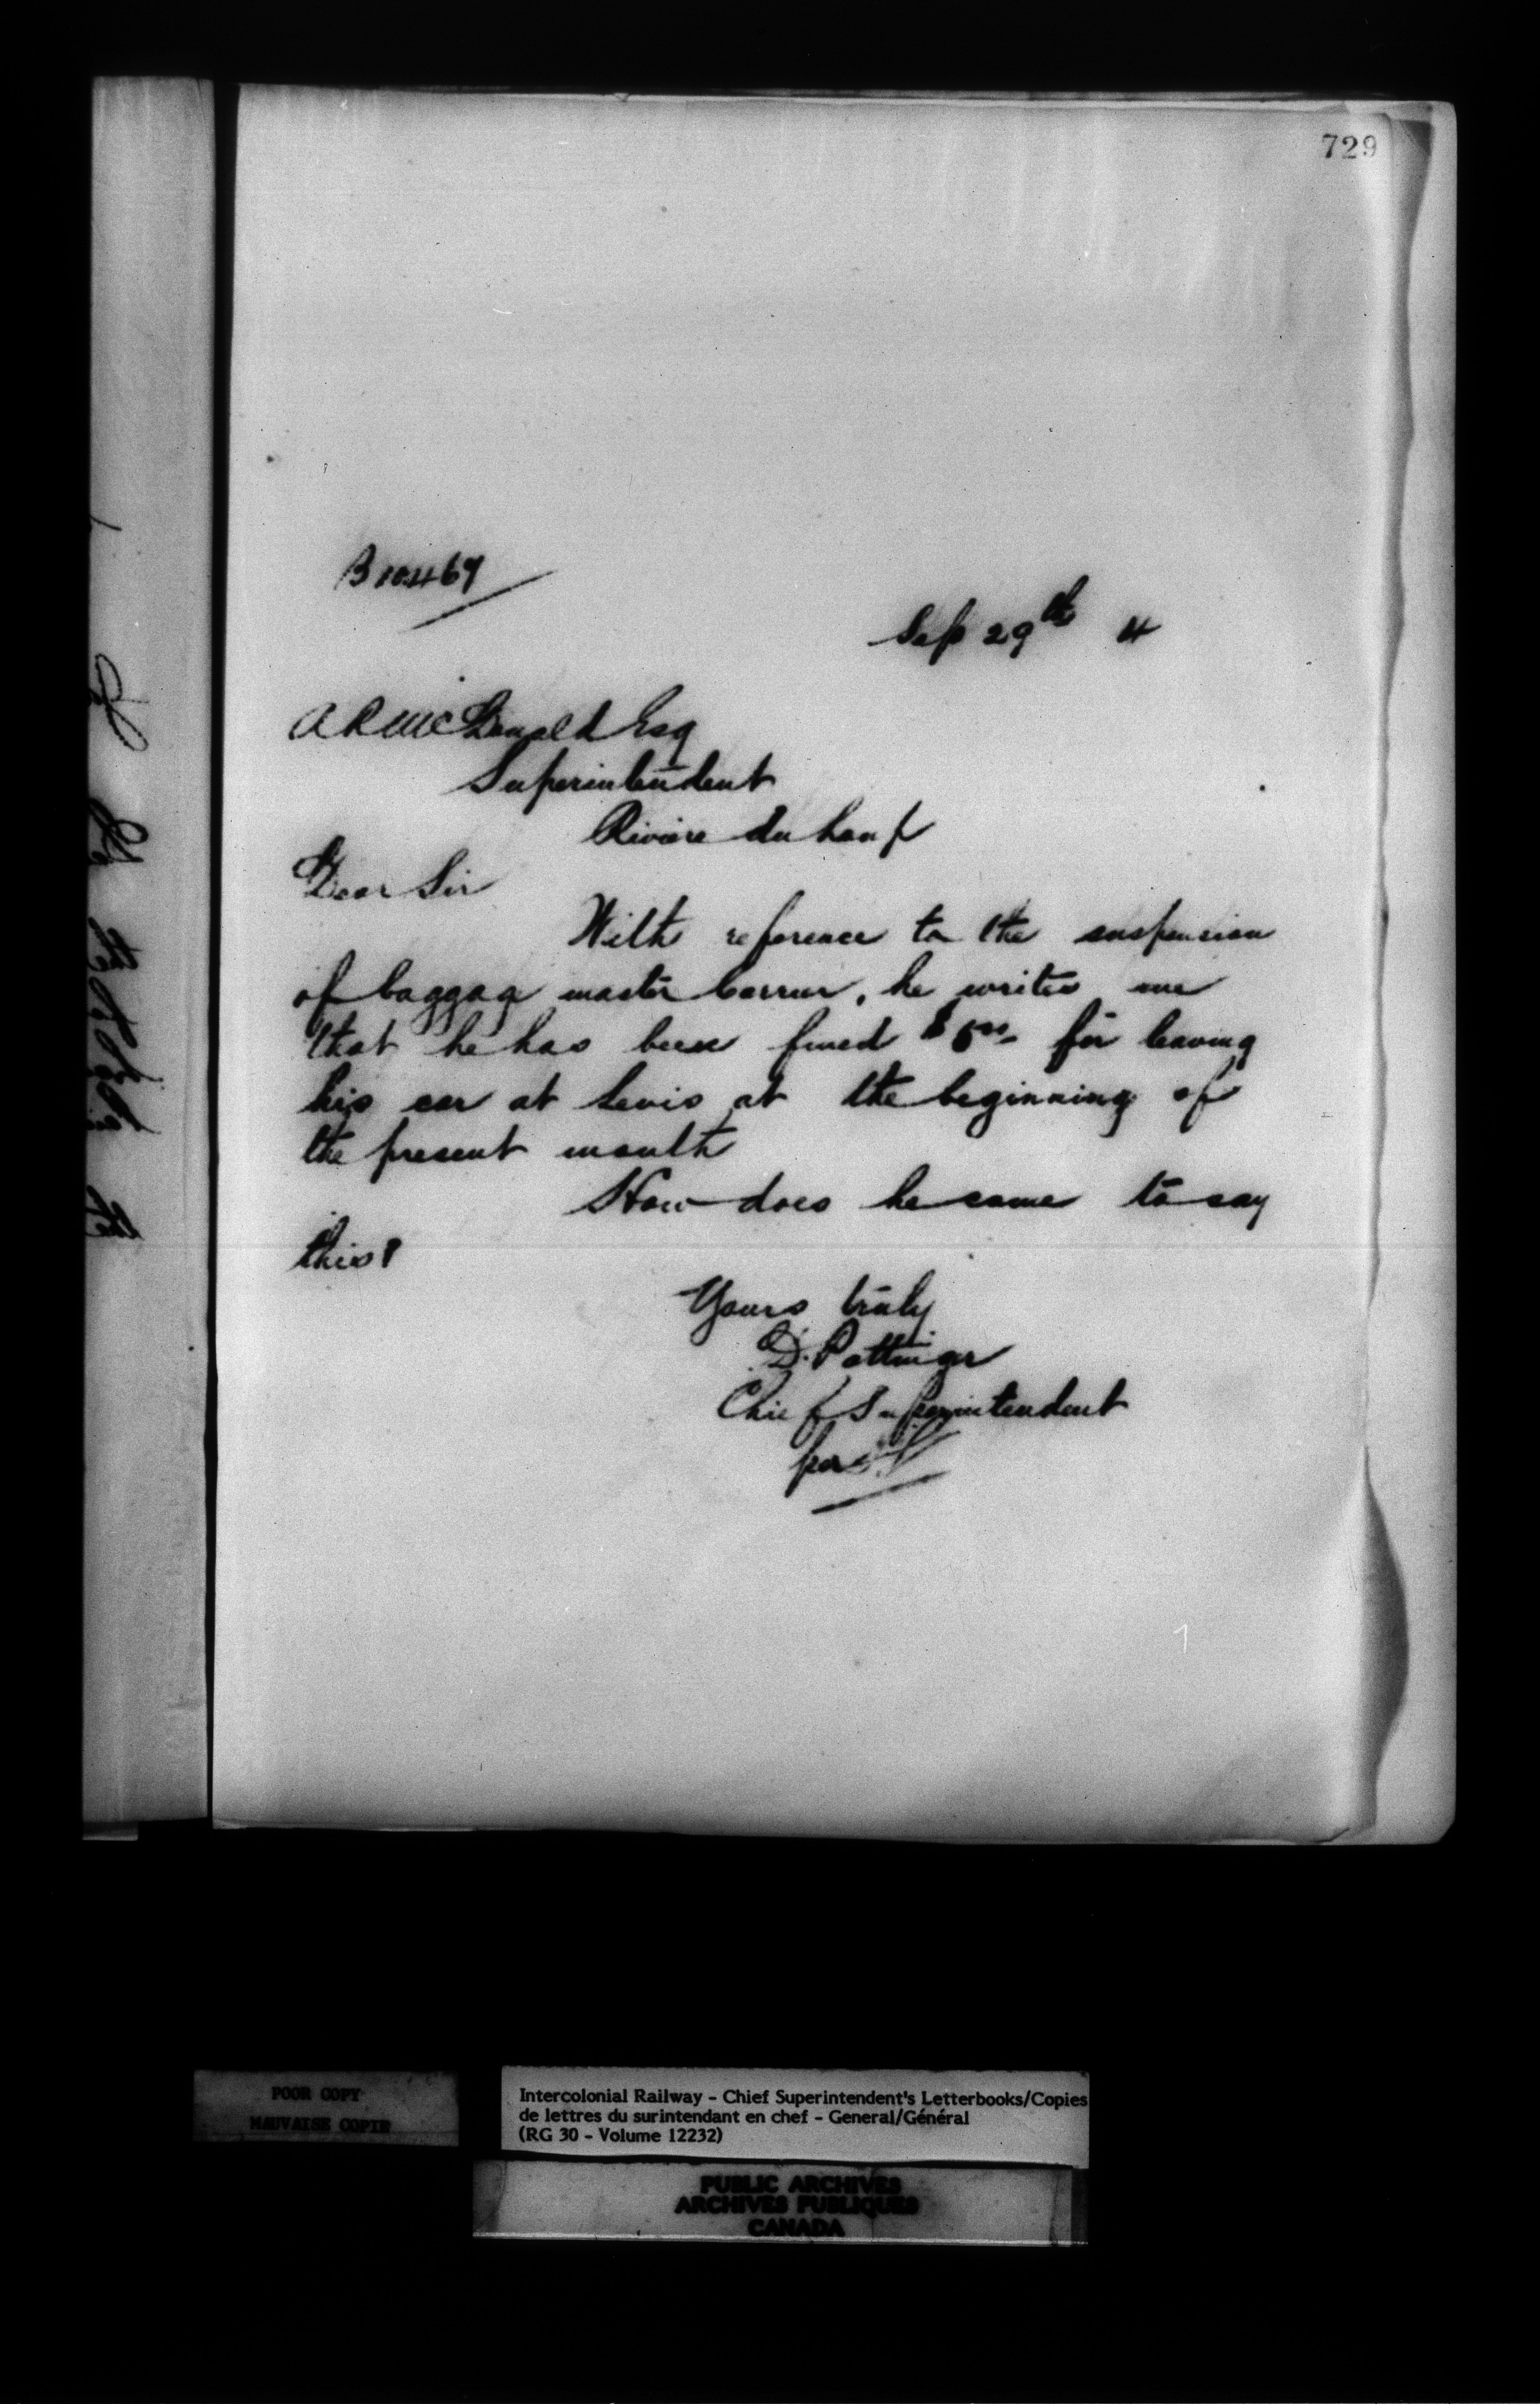 729
B 10467
Sep 29th 4
A R McDonald Esq
Superintendent
Riviere du Loup
Dear Sir
With reference to the suspension
of baggage master, he writes me
that he has been fined $5 00 for leaving
his car at Levis at the beginning of
the present month
How does he come to say
this?
Yours truly
D. Pottinger
Chief Superintendent
per
POOR COPY
MAUVAISE COPIE
Intercolonial Railway - Chief Superintendent's Letterbooks/Copies
de lettres du surintendant en chef - General/Général
(RG 30 - Volume 12232)
PUBLIC ARCHIVES
ARCHIVES PUBLIQUES
CANADA